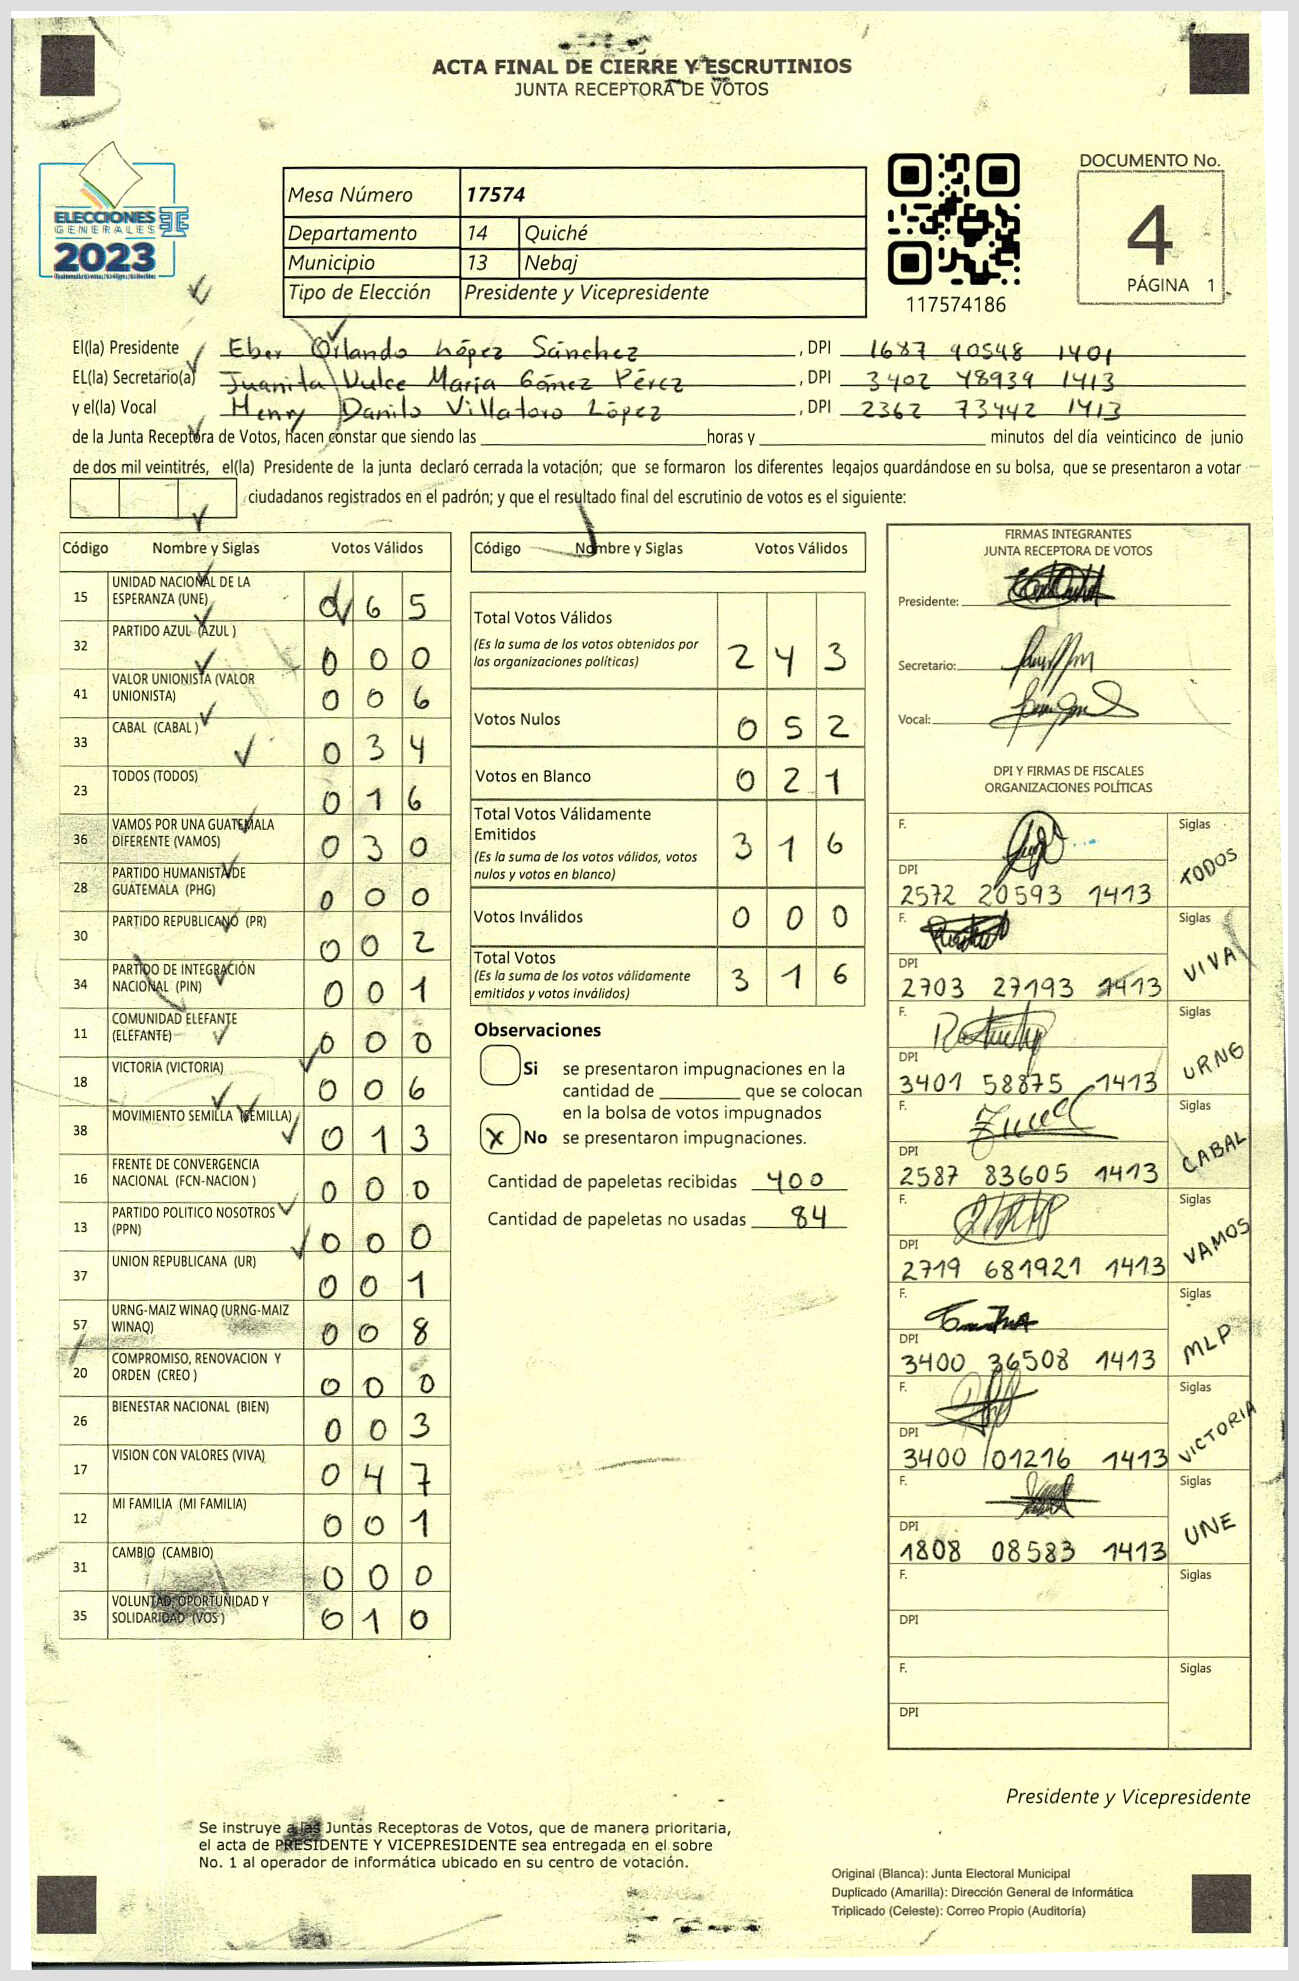 ACTA FINAL DE CIERRE Y ESCRUTINIOS
JUNTA RECEPTORA DE VOTOS
ELECCIONES
GENERALES
2023
Mesa Número 17574
Departamento 14 Quiché
Municipio 13 Nebaj
Tipo de Elección Presidente y Vicepresidente
117574186
DOCUMENTO No.
4
PÁGINA 1
El(la) Presidente Eber Orlando López Sánchez, DPI 1687 90548 1401
EL(la) Secretario(a) Juanita Dulce María Gómez Pérez, DPI 3402 48939 1413
y el(la) Vocal Henry Danilo Villatoro López, DPI 2362 73442 1413
de la Junta Receptora de Votos, hacen constar que siendo las ____ horas y ____ minutos del día veinticinco de junio
de dos mil veintitrés, el(la) Presidente de la junta declaró cerrada la votación; que se formaron los diferentes legajos guardándose en su bolsa, que se presentaron a votar
ciudadanos registrados en el padrón; y que el resultado final del escrutinio de votos es el siguiente:
Código Nombre y Siglas Votos Válidos
15 UNIDAD NACIONAL DE LA ESPERANZA (UNE) 65
32 PARTIDO AZUL (AZUL ) 0 0 0
41 VALOR UNIONISTA (VALOR UNIONISTA) 0 0 6
33 CABAL (CABAL ) 0 3 4
23 TODOS (TODOS) 0 1 6
36 VAMOS POR UNA GUATEMALA DIFERENTE (VAMOS) 0 3 0
28 PARTIDO HUMANISTA DE GUATEMALA (PHG) 0 0 0
30 PARTIDO REPUBLICANO (PR) 0 0 2
34 PARTIDO DE INTEGRACIÓN NACIONAL (PIN) 0 0 1
11 COMUNIDAD ELEFANTE (ELEFANTE) 0 0 0
18 VICTORIA (VICTORIA) 0 0 6
38 MOVIMIENTO SEMILLA (SEMILLA) 0 1 3
16 FRENTE DE CONVERGENCIA NACIONAL (FCN-NACION ) 0 0 0
13 PARTIDO POLITICO NOSOTROS (PPN) 0 0 0
37 UNION REPUBLICANA (UR) 0 0 1
57 URNG-MAIZ WINAQ (URNG-MAIZ WINAQ) 0 0 8
20 COMPROMISO, RENOVACION Y ORDEN (CREO ) 0 0 0
26 BIENESTAR NACIONAL (BIEN) 0 0 3
17 VISION CON VALORES (VIVA) 0 4 7
12 MI FAMILIA (MI FAMILIA) 0 0 1
31 CAMBIO (CAMBIO) 0 0 0
35 VOLUNTAD, OPORTUNIDAD Y SOLIDARIDAD (VOS ) 0 1 0
Código Nombre y Siglas Votos Válidos
Total Votos Válidos 2 4 3
(Es la suma de los votos obtenidos por
las organizaciones políticas)
Votos Nulos 0 5 2
Votos en Blanco 0 2 1
Total Votos Válidamente
Emitidos 3 1 6
(Es la suma de los votos válidos, votos
nulos y votos en blanco)
Votos Inválidos 0 0 0
Total Votos 3 1 6
(Es la suma de los votos válidamente
emitidos y votos inválidos)
Observaciones
Si se presentaron impugnaciones en la
cantidad de ____ que se colocan
en la bolsa de votos impugnados
X No se presentaron impugnaciones.
Cantidad de papeletas recibidas 400
Cantidad de papeletas no usadas 84
FIRMAS INTEGRANTES
JUNTA RECEPTORA DE VOTOS
Presidente:
Secretario:
Vocal:
DPI Y FIRMAS DE FISCALES
ORGANIZACIONES POLÍTICAS
F. Siglas TODOS
DPI 2572 20593 1413
F. Siglas VIVA
DPI 2703 27193 1413
F. Siglas URNG
DPI 3401 58875 1413
F. Siglas CABAL
DPI 2587 83605 1413
F. Siglas VAMOS
DPI 2719 681921 1413
F. Siglas MLP
DPI 3400 36508 1413
F. Siglas VICTORIA
DPI 3400 01216 1413
F. Siglas UNE
DPI 1808 08583 1413
F. Siglas
DPI
F. Siglas
DPI
Presidente y Vicepresidente
Se instruye a las Juntas Receptoras de Votos, que de manera prioritaria,
el acta de PRESIDENTE Y VICEPRESIDENTE sea entregada en el sobre
No. 1 al operador de informática ubicado en su centro de votación.
Original (Blanca): Junta Electoral Municipal
Duplicado (Amarilla): Dirección General de Informática
Triplicado (Celeste): Correo Propio (Auditoría)